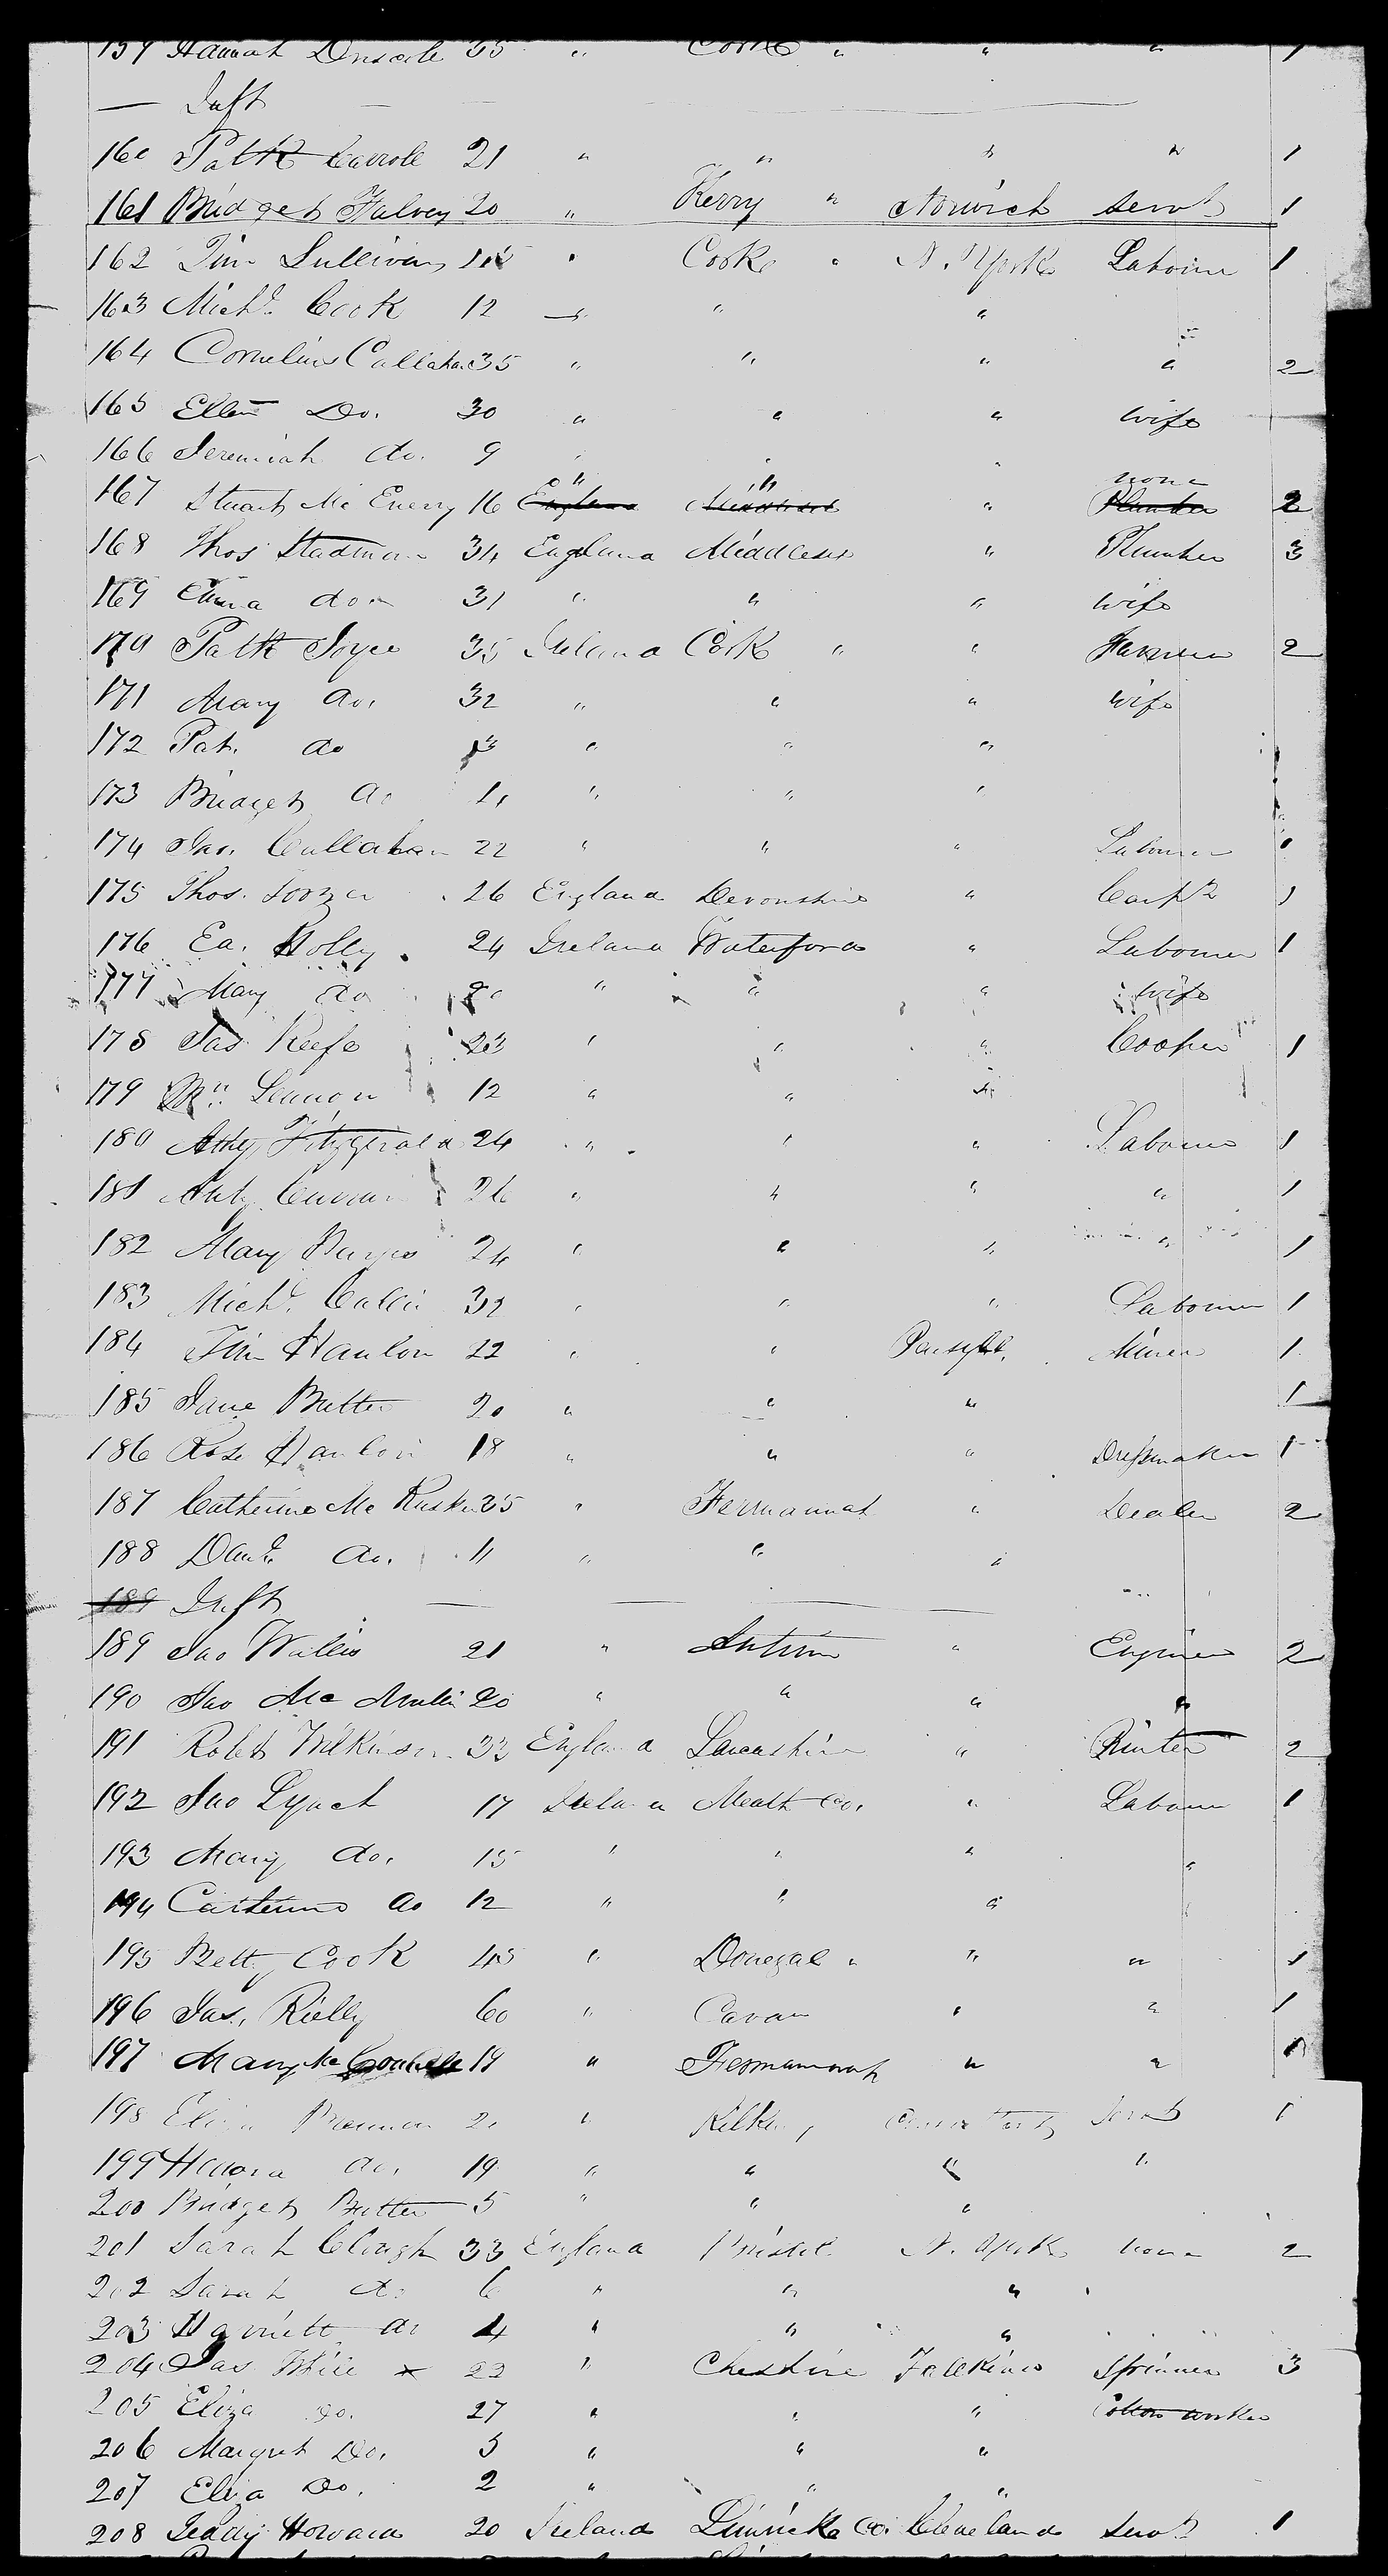 159 Hannah Driscole 35 " Corke " " " 1
— Inft
160 Patk Carrole 21 " " " " 1
161 Bridget Falvey 20 " Kerry " Norwich servt 1
162 Tim Sullivan " Corke " N. York Laborer 1
163 Michl Cook 12 " " "
164 Cornelius Callahan 35 " " " " 2
165 Ellen Do. 30 " " " wife
166 Jeremiah do. 9 " " "
167 Stuart Mc Enery 16 England " Middlesex " " Plumber none 2
168 Thos Stadman 34 England Middlesex " Plumber 3
169 Emma do 31 " " " wife
170 Patk Joyce 35 Ireland Cork " " Farmer 2
171 Mary do. 32 " " " wife
172 Pat. do 3 " " "
173 Bridget do 1 " " "
174 Jas. Callahan 22 " " " Labourer 1
175 Thos. 26 England Devonshire " Carpr 1
176 Ed. Holly 24 Ireland Waterford " Labourer 1
177 Mary do 20 " " " wife
178 Jas Keefe 23 " " " Cooper 1
179 Lennon 12 " " "
180 Fitzgerald 24 " " " Labourer 1
181 26 " " " " 1
182 Mary 24 " " " " 1
183 Michl. 32 " " " Labourer 1
184 Tim Hanlon 22 " " Pensylve. Miner 1
185 Jane Butler 20 " " " 1
186 Rose Hanlon 18 " " " Dressmaker 1
187 Catherine Mc Kusker 35 " Fermannah " Dealer 2
188 Danl. do. 11 " " "
189 Inft
189 Jno Wallis 21 " Antrim " Engineer 2
190 Jno Mc Mullin 20 " " " "
191 Robt Wilkinson 33 England Lancashire " Printer 2
192 Jno Lynch 17 Ireland Meath Co. " Labourer 1
193 Mary do. 15 " " " "
194 Catherine do 12 " " "
195 Betty Cook 45 " Donegal " " " 1
196 Jas. Rielly 60 " Cavan " " 1
197 Mary Mc 19 " Fermannah " " 1
198 Eliza Brennan " Kilkeny Servt 1
199 Honora do. 19 " " " "
200 Bridget Butler 5 " " "
201 Sarah Clough 33 England Bristol N. York none 2
202 Sarah do 6 " " "
203 Harriett do 4 " " "
204 Jas White x 22 " Cheshire Spinner 3
205 Eliza Do. 27 " " " Cotton worker
206 Margret Do. 5 " " "
207 Eliza Do. 2 " " "
208 Howard 20 Ireland Limricke Co. Cleveland servt 1